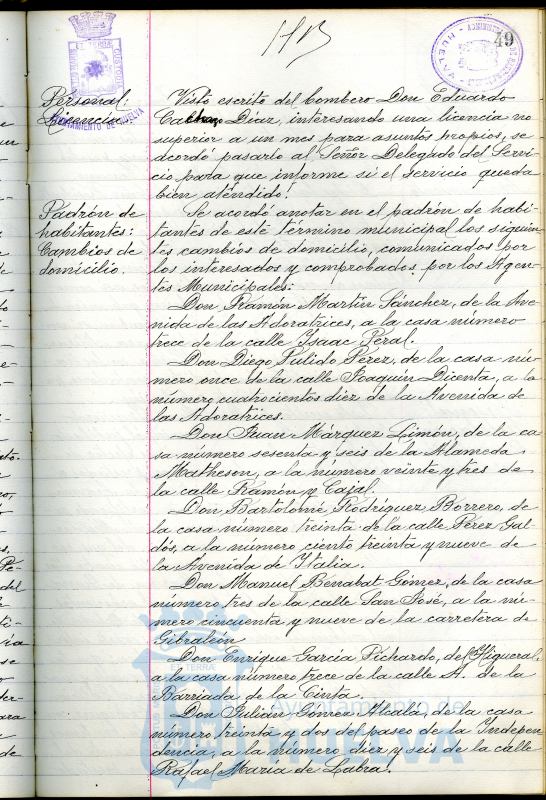 49
Personal:
Licencia
AYUNTAMIENTO DE HUELVA
Visto escrito del bombero Don Eduardo
Díaz, interesando una licencia no
superior a un mes para asuntos propios, se
acordó pasarlo al Señor Delegado del Servi-
cio para que informe si el servicio queda
bien atendido.
Padrón de
habitantes:
Cambios de
domicilio.
Se acordó anotar en el padrón de habi-
tantes de este término municipal los siguien-
tes cambios de domicilio, comunicados por
los interesados y comprobados por los Agen-
tes Municipales:
Don Ramón Martín Sánchez, de la Ave-
nida de las Adoratrices, a la casa número
trece de la calle Isaac Peral.
Don Diego Pulido Perez, de la casa nú-
mero once de la calle Joaquín Dicenta, a la
número cuatrocientos diez de la Avenida de
las Adoratrices.
Don Juan Márquez Limón, de la ca
sa número sesenta y seis de la Alameda
Matheson, a la número veinte y tres de
la calle Ramón y Cajal.
Don Bartolomé Rodríguez Borrero, de
la casa número treinta de la calle Pérez Gal-
dós, a la número ciento treinta y nueve de
la Avenida de Italia.
Don Manuel Benabat Gómez, de la casa
número tres de la calle San José, a la nú-
mero cincuenta y nueve de la carretera de
Gibraleón
Don Enrique García Pichardo, del Higueral,
a la casa número trece de la calle A. de la
Barriada de la Cinta.
Don Julián Gómez Alcalá, de la casa
número treinta y dos del paseo de la Indepen
dencia, a la número diez y seis de la calle
Rafael María de Labra.
Ayuntamiento de
HUELVA